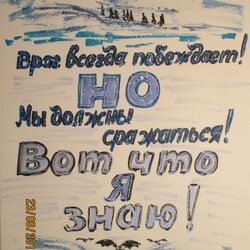 Враг всегда побеждает!
НО
Мы должны
сражаться!
Вот что
я
знаю!